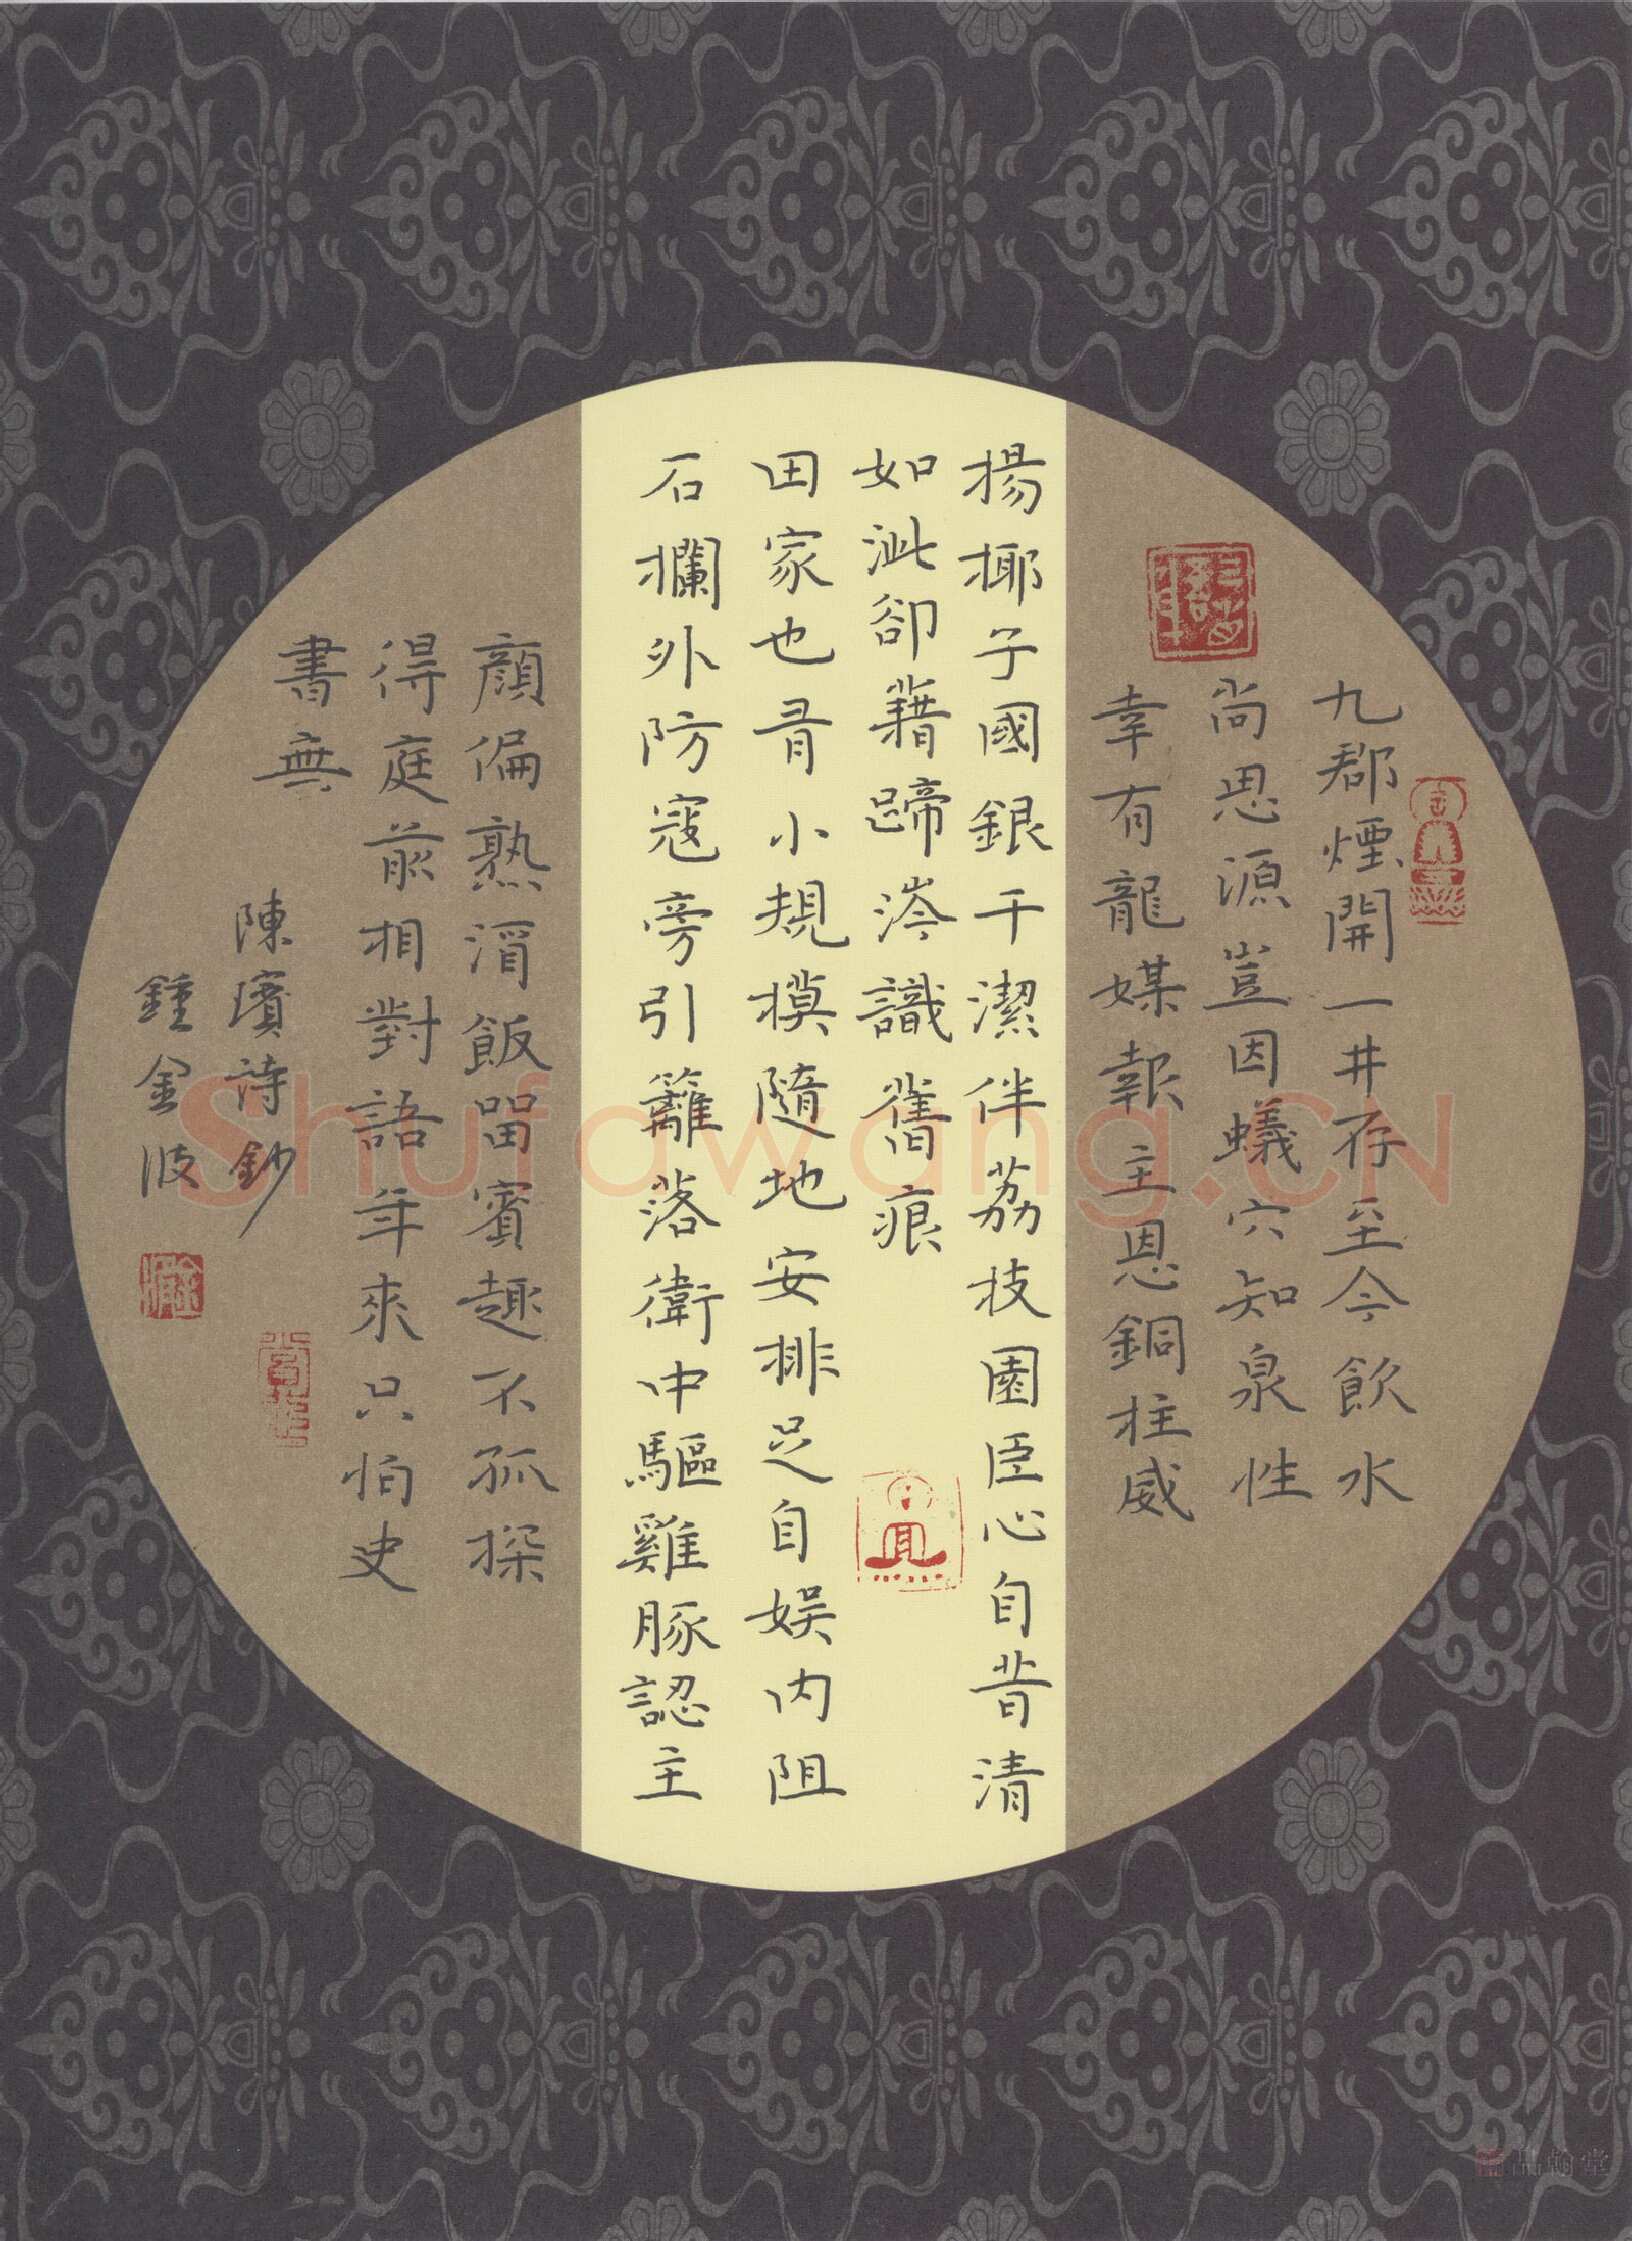 九郡煙開一井存至今飲水
尚思源豈因蟻穴知泉性
幸有龍媒報主恩銅柱威
揚椰子國銀干潔伴荔技園臣心自昔清
如泚卻藉蹄涔識舊痕
田家也有小規模隨地安排足自娛内阻
石欄外防寇旁引籬落衛中驅雞豚認主
顔偏熟湑飯留賓趣不孤探
得庭前相對語年來只怕吏
書無
陳璸詩鈔
鍾金波
Shufawang.CN